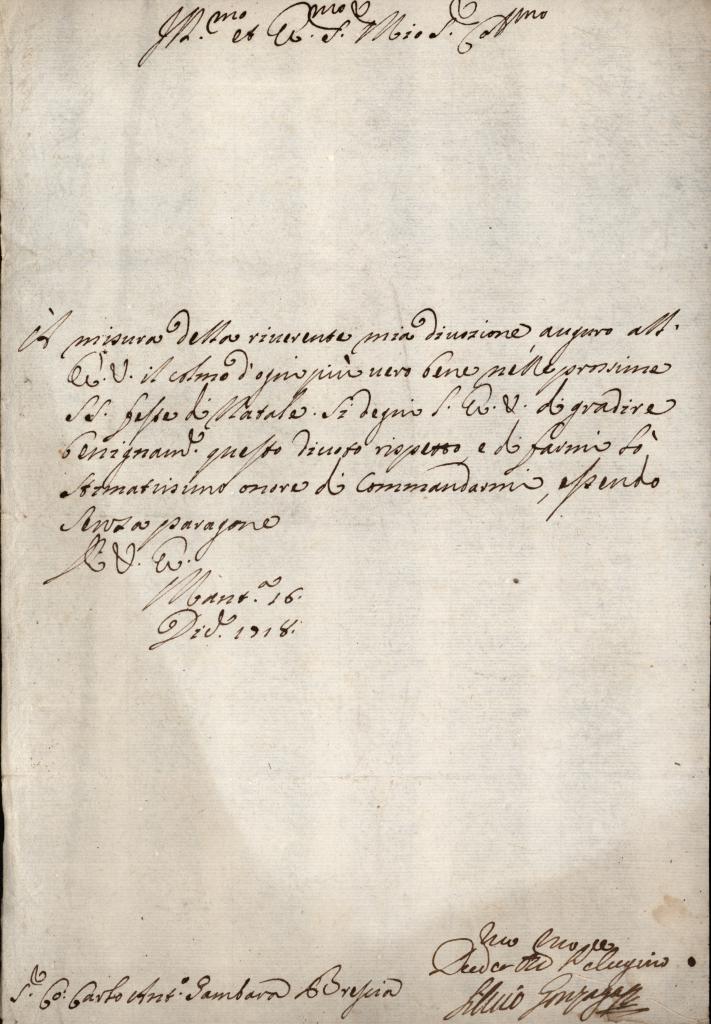 Ill.mo et Ecc.mo S.r Mio S.r Col.mo
A misura della riuerente mia diuozione auguro all'
E. V. il colmo d'ogni più uero bene nelle prossime
SS. feste di Natale. Si degni l'E. V. di gradire
benignam.te questo diuoto rispetto, e di farmi lo
stimatissimo onore di Commandarmi, essendo
senza paragone
D. V. E.
Mant.a 16.
Dic.e 1718.
Diu.mo et Obb.mo Ser.re
Siluio Gonzaga
S.r Co: Carlo Ant.o Gambara Brescia